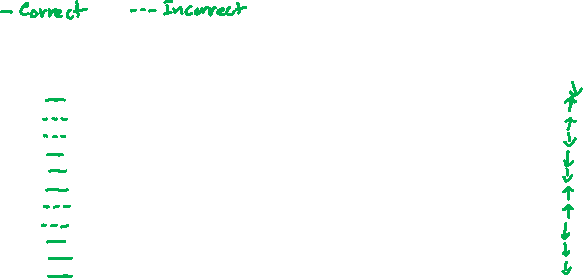 — Correct --- Incorrect